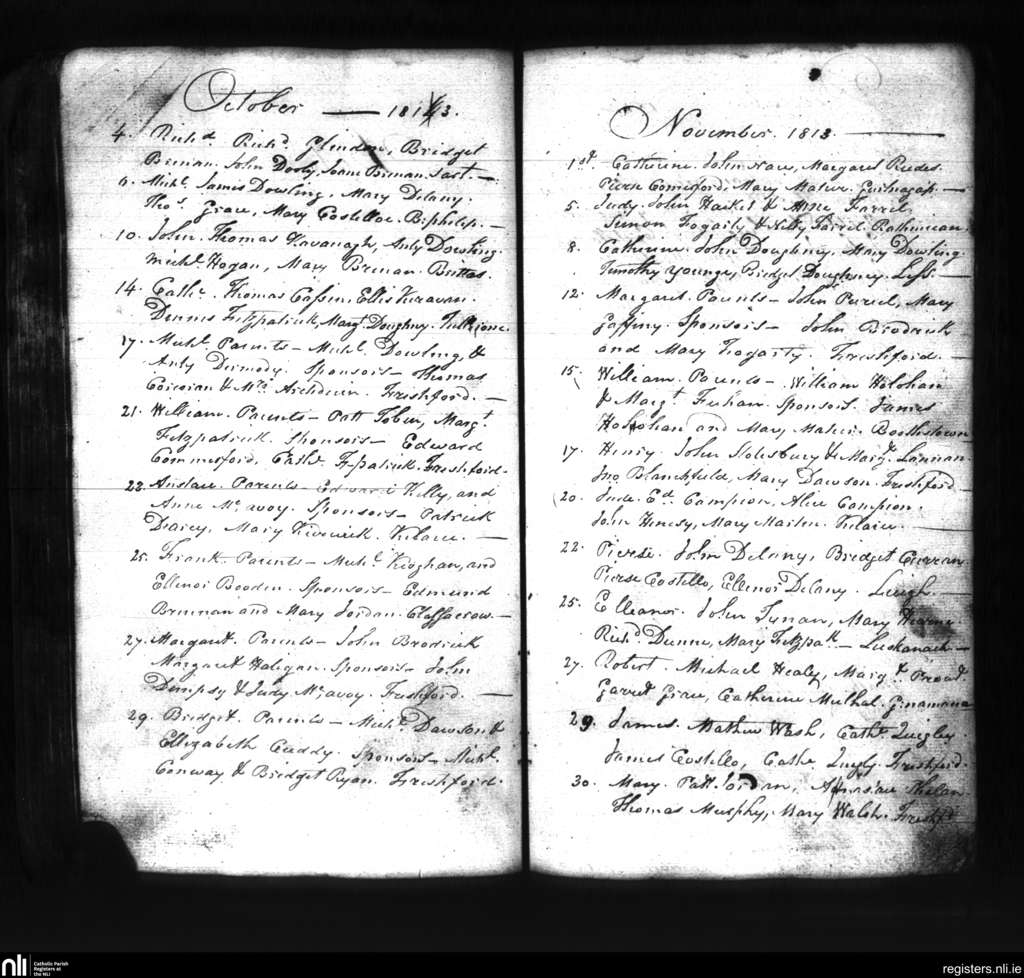 October — 1813.
4. Richd. Richd. Glendon, Bridget
Brenan. John Dooly, Joane Brenan. Sart. —
9. Michl. James Dowling, Mary Delany.
Thos. Grace, Mary Costelloe. —
10. John. Thomas Kavanagh, Anty Dowling.
Michl. Hogan, Mary Brenan. Brittas.
14. Cathe. Thomas Cassin, Ellis Kiravan.
Dennis Fitzpatrick, Margt. Doughny.
17. Michl. Parents — Michl. Dowling, &
Anty Dermody. Sponsois — Thomas
Corcoran & Mrs. Archdeein. Freshford. —
21. William. Parents — Patt Tobin, Margt.
Fitzpatrick. Sponsois — Edward
Commerford, Cathe. Fzpatrick. Freshford.
23. Parents — Edward Kelly, and
Anne Mc. avoy. Sponsois — Patrick
Darcy, Mary Kilaree. —
25. Frank. Parents — Michl. Keoghan, and
Ellenor Booden. Sponsois — Edmund
Brennan and Mary Jordan. —
27. Margaret. Parents — John Brodrick
Margaret Haligan. Sponsois — John
Dempsy & Judy Mc. avoy. Freshford. —
29. Bridget. Parents — Michl. Dawson &
Ellizabeth Cuddy. Sponsois — Michl.
Conway & Bridget Ryan. Freshford.
November. 1813. —
1st. Catherine. John Naw, Margaret Rudes.
Pierce Comerford, Mary Maher. —
5. Judy. John Haikit & Anne Farrel.
Simon Fogaity & Nelly Farrel. Rathmican.
8. Catherine. John Doughney, Mary Dowling.
Timothy Younge, Bridget Doughney. Liss. —
12. Margaret. Parents — John Purcel, Mary
Gaffiny. Sponsois — John Brodrick
and Mary Fogarty. Freshford. —
15. William. Parents — William Holohan
& Margt. Feehan. Sponsois. James
Holohan and Mary Maher. Boothstown
17. Henry. John Stolesbury & Margt. Lannan.
Jno. Blanchfield, Mary Dawson. Freshford. —
20. Jude. Ed. Campion, Alice Campion.
John Henesy, Mary Martin. Kilaree. —
22. Pierse. John Delany, Bridget Curran.
Pierse Costello, Ellenor Delany. Lurgh. —
25. Elleanor. John Tynan, Mary Hearne
Richd. Dunne, Mary Fitzpatk. —
27. Robert. Michael Healy, Margt. Proud.
Garret Grace, Catherine Mulhal.
29. James. Mathew Wash, Cathe. Quigley.
James Costello, Cathe. Quigly. Freshford.
30. Mary. Patt. Jordan, Anastau Phelan.
Thomas Murphy, Mary Walsh. Freshfd.
nli
Catholic Parish
Registers at
the NLI
registers.nli.ie